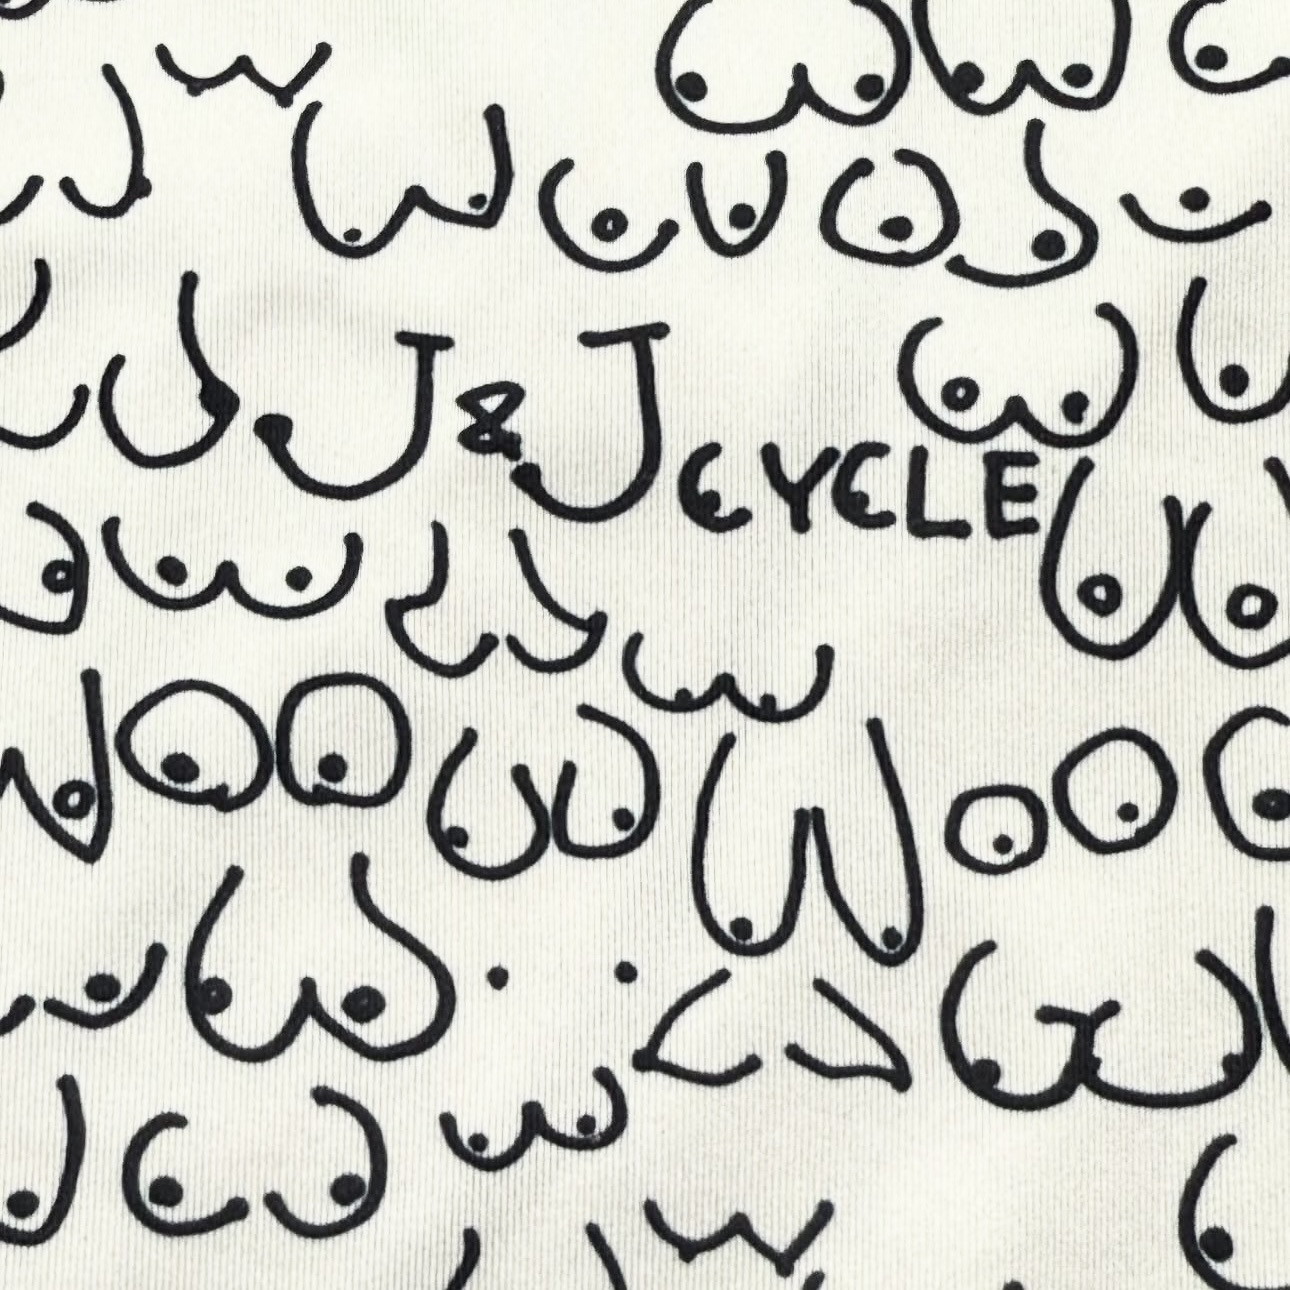 J & J CYCLE